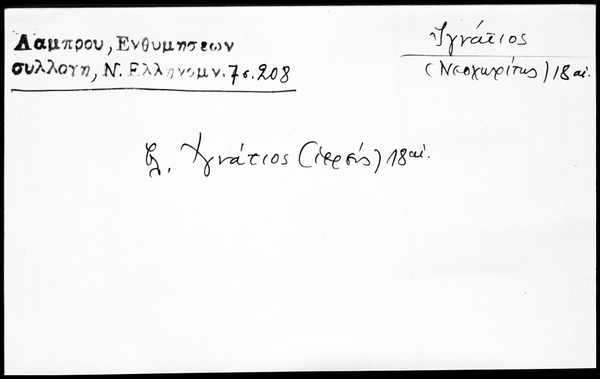 Λαμπρου, Ενθυμησεων
συλλογη, Ν. Ελληνομν. 7 σ. 208
Ἰγνάτιος
(Νεοχωρίτης) 18 αἰ.
βλ. Ἰγνάτιος (ἱερεύς) 18 αἰ.